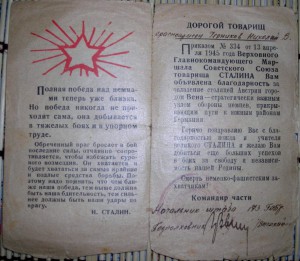 Полная победа над немцами теперь уже близка.
Но победа никогда не приходит сама, она добывается
в тяжелых боях и в упорном
труде.
Обреченный враг бросает в бой
последние силы, отчаянно сопротивляется, чтобы избежать сурового
возмездия. Он хватается и будет
хвататься за самые крайние
и подлые средства борьбы. Поэтому надо помнить, что чем ближе
наша победа, тем выше должна
быть наша бдительность, тем сильнее
должны быть наши удары по
врагу.
И. СТАЛИН.
ДОРОГОЙ ТОВАРИЩ
Приказом № 334 от 13 апреля
1945 года Верховного
Главнокомандующего Маршала
Советского Союза
товарища СТАЛИНА Вам
объявлена благодарность за
овладение столицей Австрии городом
Вена — стратегически важным
узлом обороны немцев, прикрывавшим
пути к южным районам
Германии.
Горячо поздравляю Вас с благодарностью
вождя и учителя
великого СТАЛИНА и желаю Вам
добиться еще больших успехов
в боях за свободу и независимость
нашей Родины.
Смерть немецко-фашистским
захватчикам!
Командир части